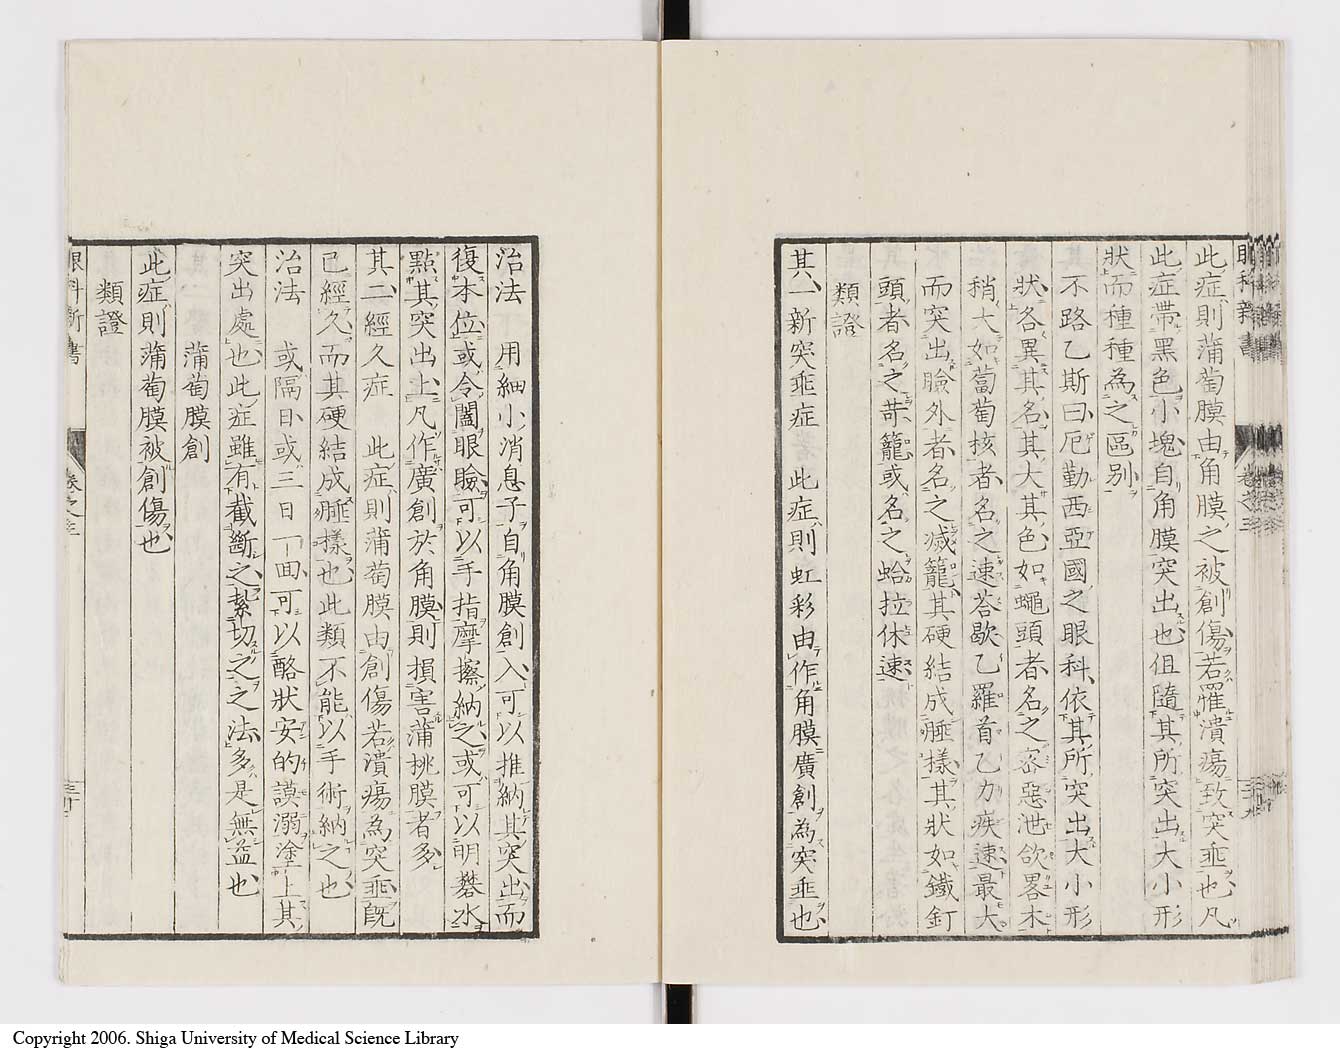 眼科新書
卷之三
二十九
此症則蒲萄膜由角膜之被創傷若罹潰瘍致突垂也凡
此症帶黑色小塊自角膜突出也但隨其所突出大小形
狀而種種為之區別
其不路乙斯曰厄勤西亞國之眼科依其所突出大小形
狀各異其名其大其色如蠅頭者名之密惡泄欲畧木
稍大如蔔萄核者名之速荅歇乙羅首乙力疾速最大
而突出瞼外者名之滅籠其硬結成腫樣其狀如鐵釘
頭者名之苛籠或名之蛤拉休速
類證
其一新突垂症 此症則虹彩由作角膜廣創為突垂也
治法 用細小消息子自角膜創入可以推納其突出而
復本位或令闔眼瞼可以手指摩擦納之或可以明礬水
點其突出上凡作廣創於角膜則損害蒲桃膜者多
其二經久症 此症則蒲萄膜由創傷若潰瘍為突垂既
已經久而其硬結成腫樣也此類不能以手術納之也
治法 或隔日或三日一回可以酪狀安的謨溺塗上其
突出處也此症雖有截斷之紮切之之法多是無益也
蒲萄膜創
此症則蒲萄膜被創傷也
類證
眼科新書
卷之三
三十
Copyright 2006. Shiga University of Medical Science Library